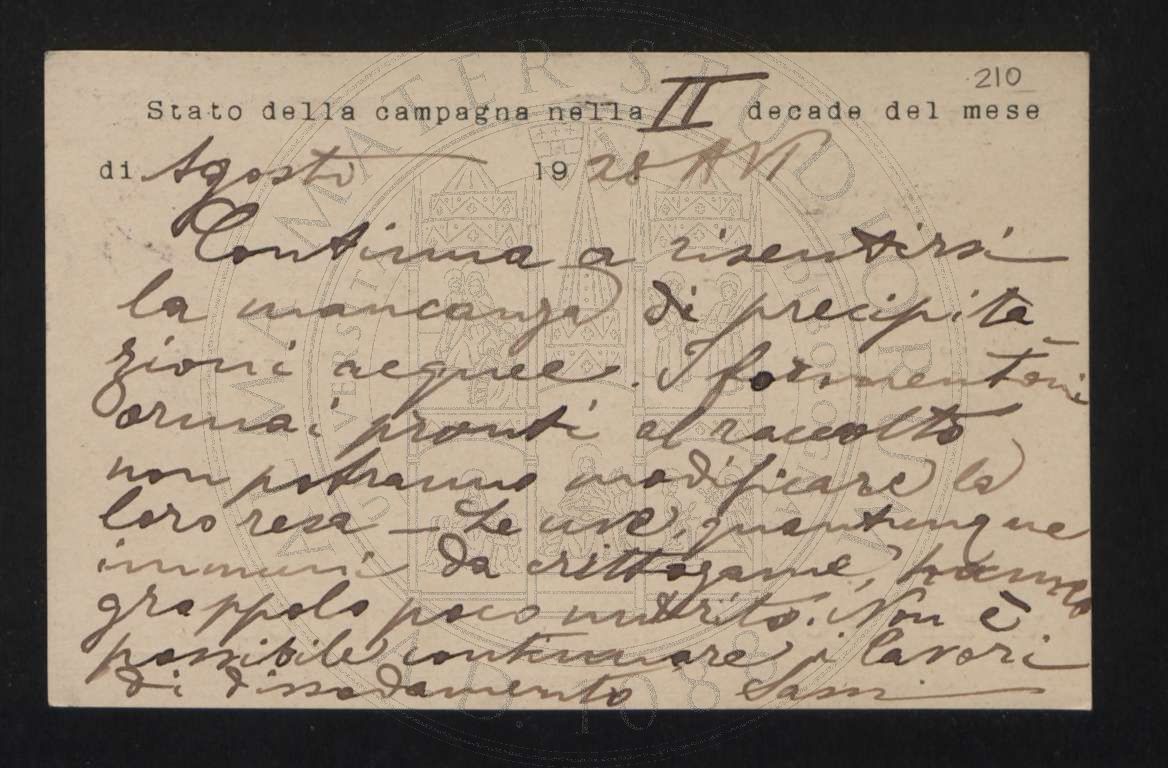 210
Stato della campagna nella II decade del mese
di Agosto 1928 A VI
Continua a risentirsi
la mancanza di precipita
zioni acquee. I formentoni
ormai pronti al raccolto
non potranno modificare la
loro resa - Le uve, quantunque
immuni da crittogame, hanno
grappolo poco nutrito. Non è
possibile continuare i lavori
di dissodamento Sassi
ALMA MATER STUDIORUM
A.D. 1088